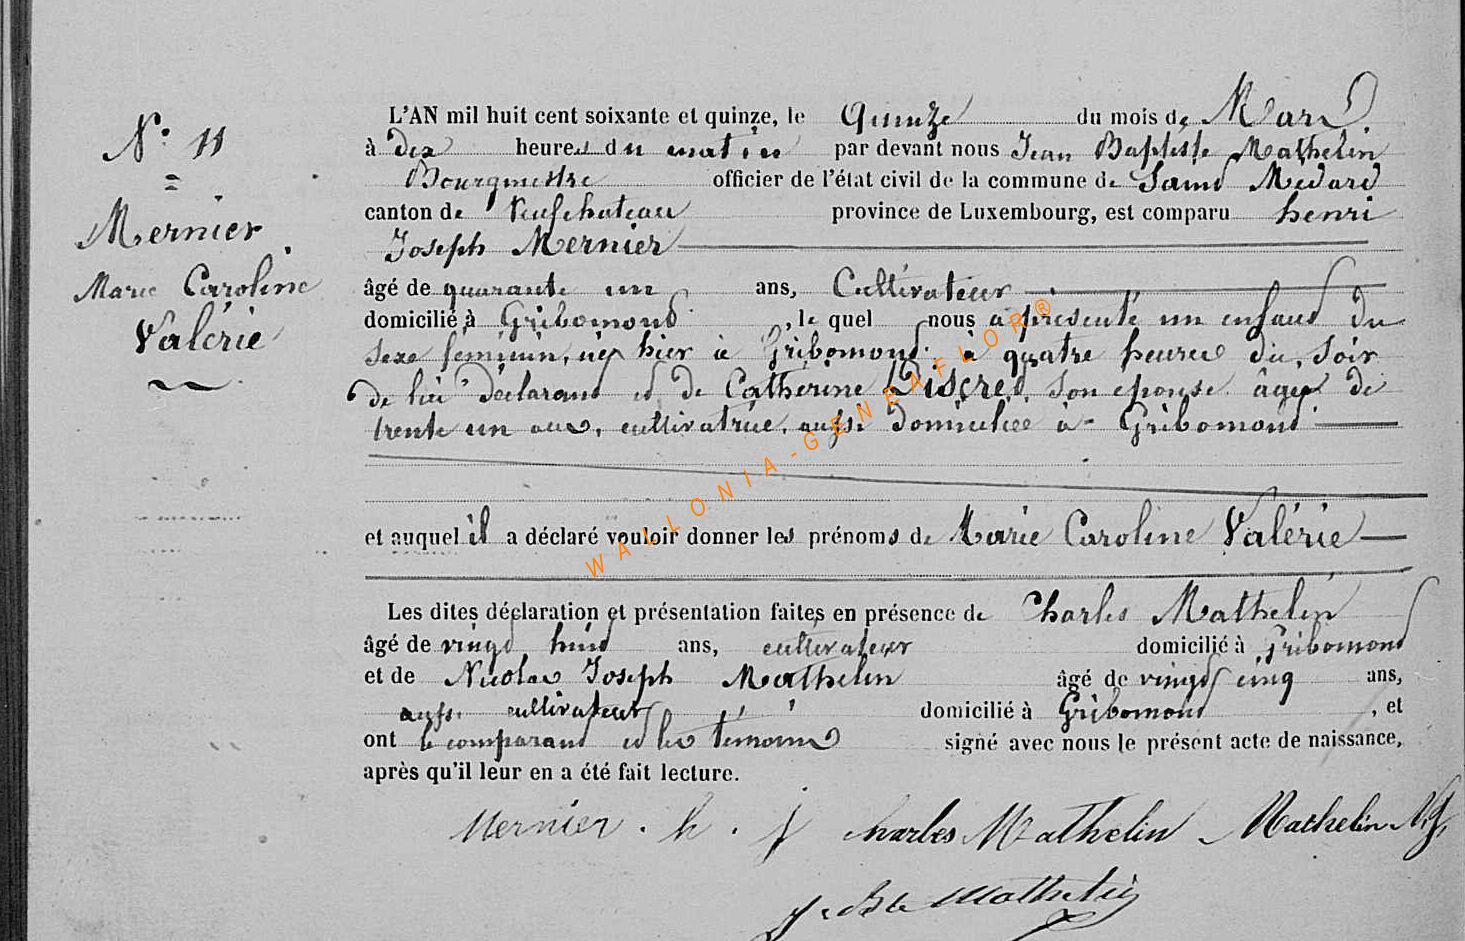 N° 11
Mernier
Marie Caroline
Valérie
L'AN mil huit cent soixante et quinze, le quinze du mois de Mars
à dix heures du matin par devant nous Jean Baptiste Mathelin
Bourgmestre officier de l'état civil de la commune de Saint Médard
canton de Neufchateau province de Luxembourg, est comparu henri
Joseph Mernier
âgé de quarante un ans, Cultivateur
domicilié à Gribomont, le quel nous a présenté un enfant du
sexe féminin, née hier à Gribomont à quatre heures du soir
de lui déclarant et de Catherine Discret, son épouse âgée de
trente un ans, cultivatrice, aussi domiciliée à Gribomont
et auquel il a déclaré vouloir donner les prénoms de Marie Caroline Valérie
Les dites déclaration et présentation faites en présence de Charles Mathelin
âgé de vingt huit ans, cultivateur domicilié à Gribomont
et de Nicolas Joseph Mathelin âgé de vingt cinq ans,
aussi cultivateur domicilié à Gribomont, et
ont le comparant et les témoins signé avec nous le présent acte de naissance,
après qu'il leur en a été fait lecture.
Mernier . h . j Charles Mathelin Mathelin N.J.
J. Bte Mathelin
WALLONIA-GENEAFLOR®